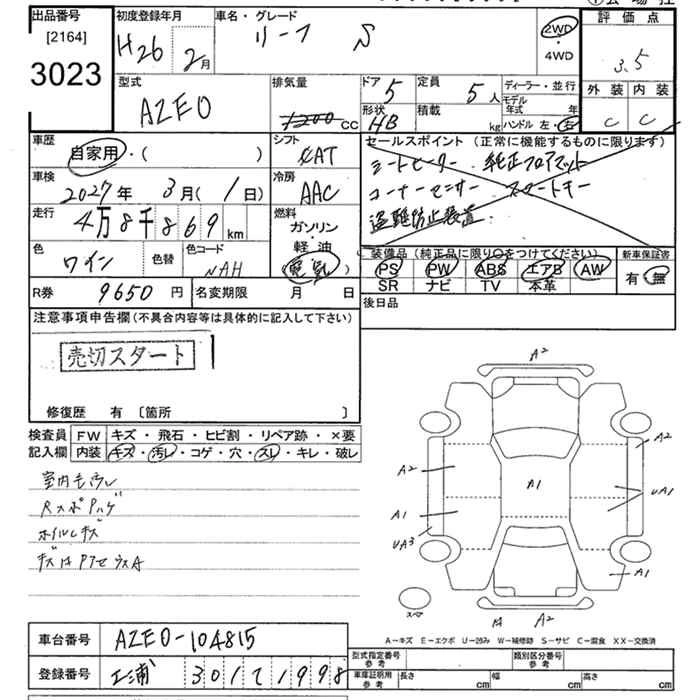 出品番号
[2164]
3023
初度登録年月
H26年 2月
車名・グレード
リーフ S
2WD
・
4WD
評価点
3.5
外装 内装
C C
型式
AZE0
排気量
1200 cc
ドア 5
形状 HB
定員 5人
積載 kg
ディーラー・並行
モデル年式 年
ハンドル 左・右
車歴
自家用・( )
シフト
CAT
セールスポイント(正常に機能するものに限ります)
シートヒーター 純正フロアマット
コーナーセンサー スマートキー
盗難防止装置
車検
2027年 3月(1日)
冷房
AAC
走行
4万8千869km
燃料
ガソリン
・
軽油
(電気)
色
ワイン
色替
色コード
NAH
装備品(純正品に限り○をつけてください)
PS PW ABS エアB AW
SR ナビ TV 本革
新車保証書
有・無
R券 9650円
名変期限 月 日
後日品
注意事項申告欄(不具合内容等は具体的に記入して下さい)
売切スタート
修復歴 有 [箇所 ]
検査員記入欄
FW キズ・飛石・ヒビ割・リペア跡・×要
内装 キズ・汚レ・コゲ・穴・スレ・キレ・破レ
室内モ汚レ
ホイルキズ
A2
A2
A2
A1
UA1
A1
UA3
A1
スペア
A2
A－キズ E－エクボ U－凹み W－補修跡 S－サビ C－腐食 XX－交換済
車台番号 AZE0-104815
登録番号
型式指定番号 参考
類別区分番号 参考
車庫証明用 参考
長さ cm
幅 cm
高さ cm